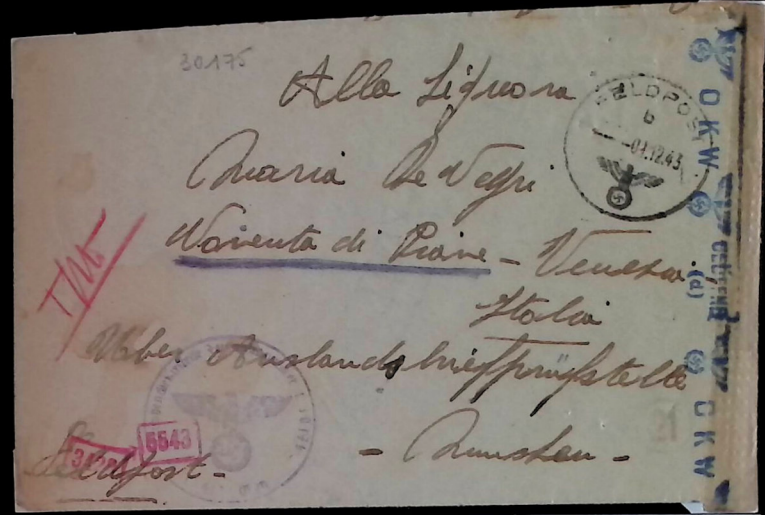 30175
Alla Signora
Maria De Negri
Noventa di Piave - Venezia
Italia
Über Auslandsbriefprüfstelle
- Munchen -
Feldpost -
FELDPOST
b
-01.12.43
OKW
Geöffnet
(d)
OKW
5543